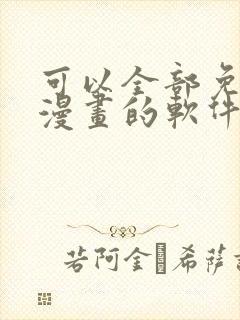 可以全部免
漫畫的軟件
若阿金·希薩